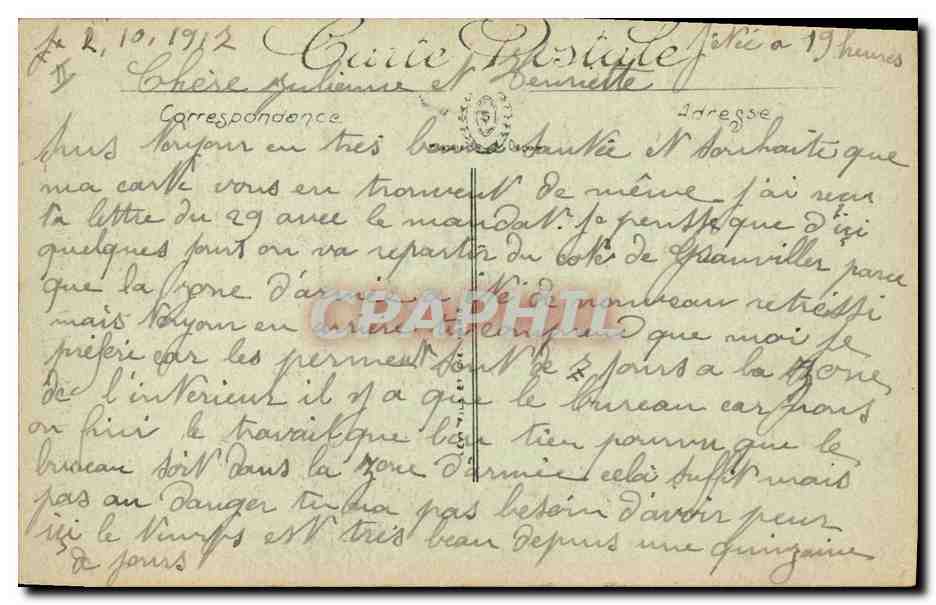 2, 10, 1917 Carte Postale à 19 heures
II Chère Julienne et Henriette
Correspondance Adresse
suis toujour en très bonne santée et souhaite que
ma carte vous en trouvent de même j'ai recu
ta lettre du 29 avec le mandat. je pensse que d'içi
quelques jours on va repartir du coté de Granviller parce
que la zone d'armée a été de nouveau retréssi
mais toujour en arrière tu comprend que moi je
préfère car les perment sont de 2 jours a la zone
de l'intérieur il n'y a que le bureau car nous
on fini le travail que bon tien pourvu que le
bureau soit dans la zone d'armée cela suffit mais
pas au danger tu na pas besoin d'avoir peur
içi le temps est très beau depuis une quinzaine
de jours
CRAPHIL